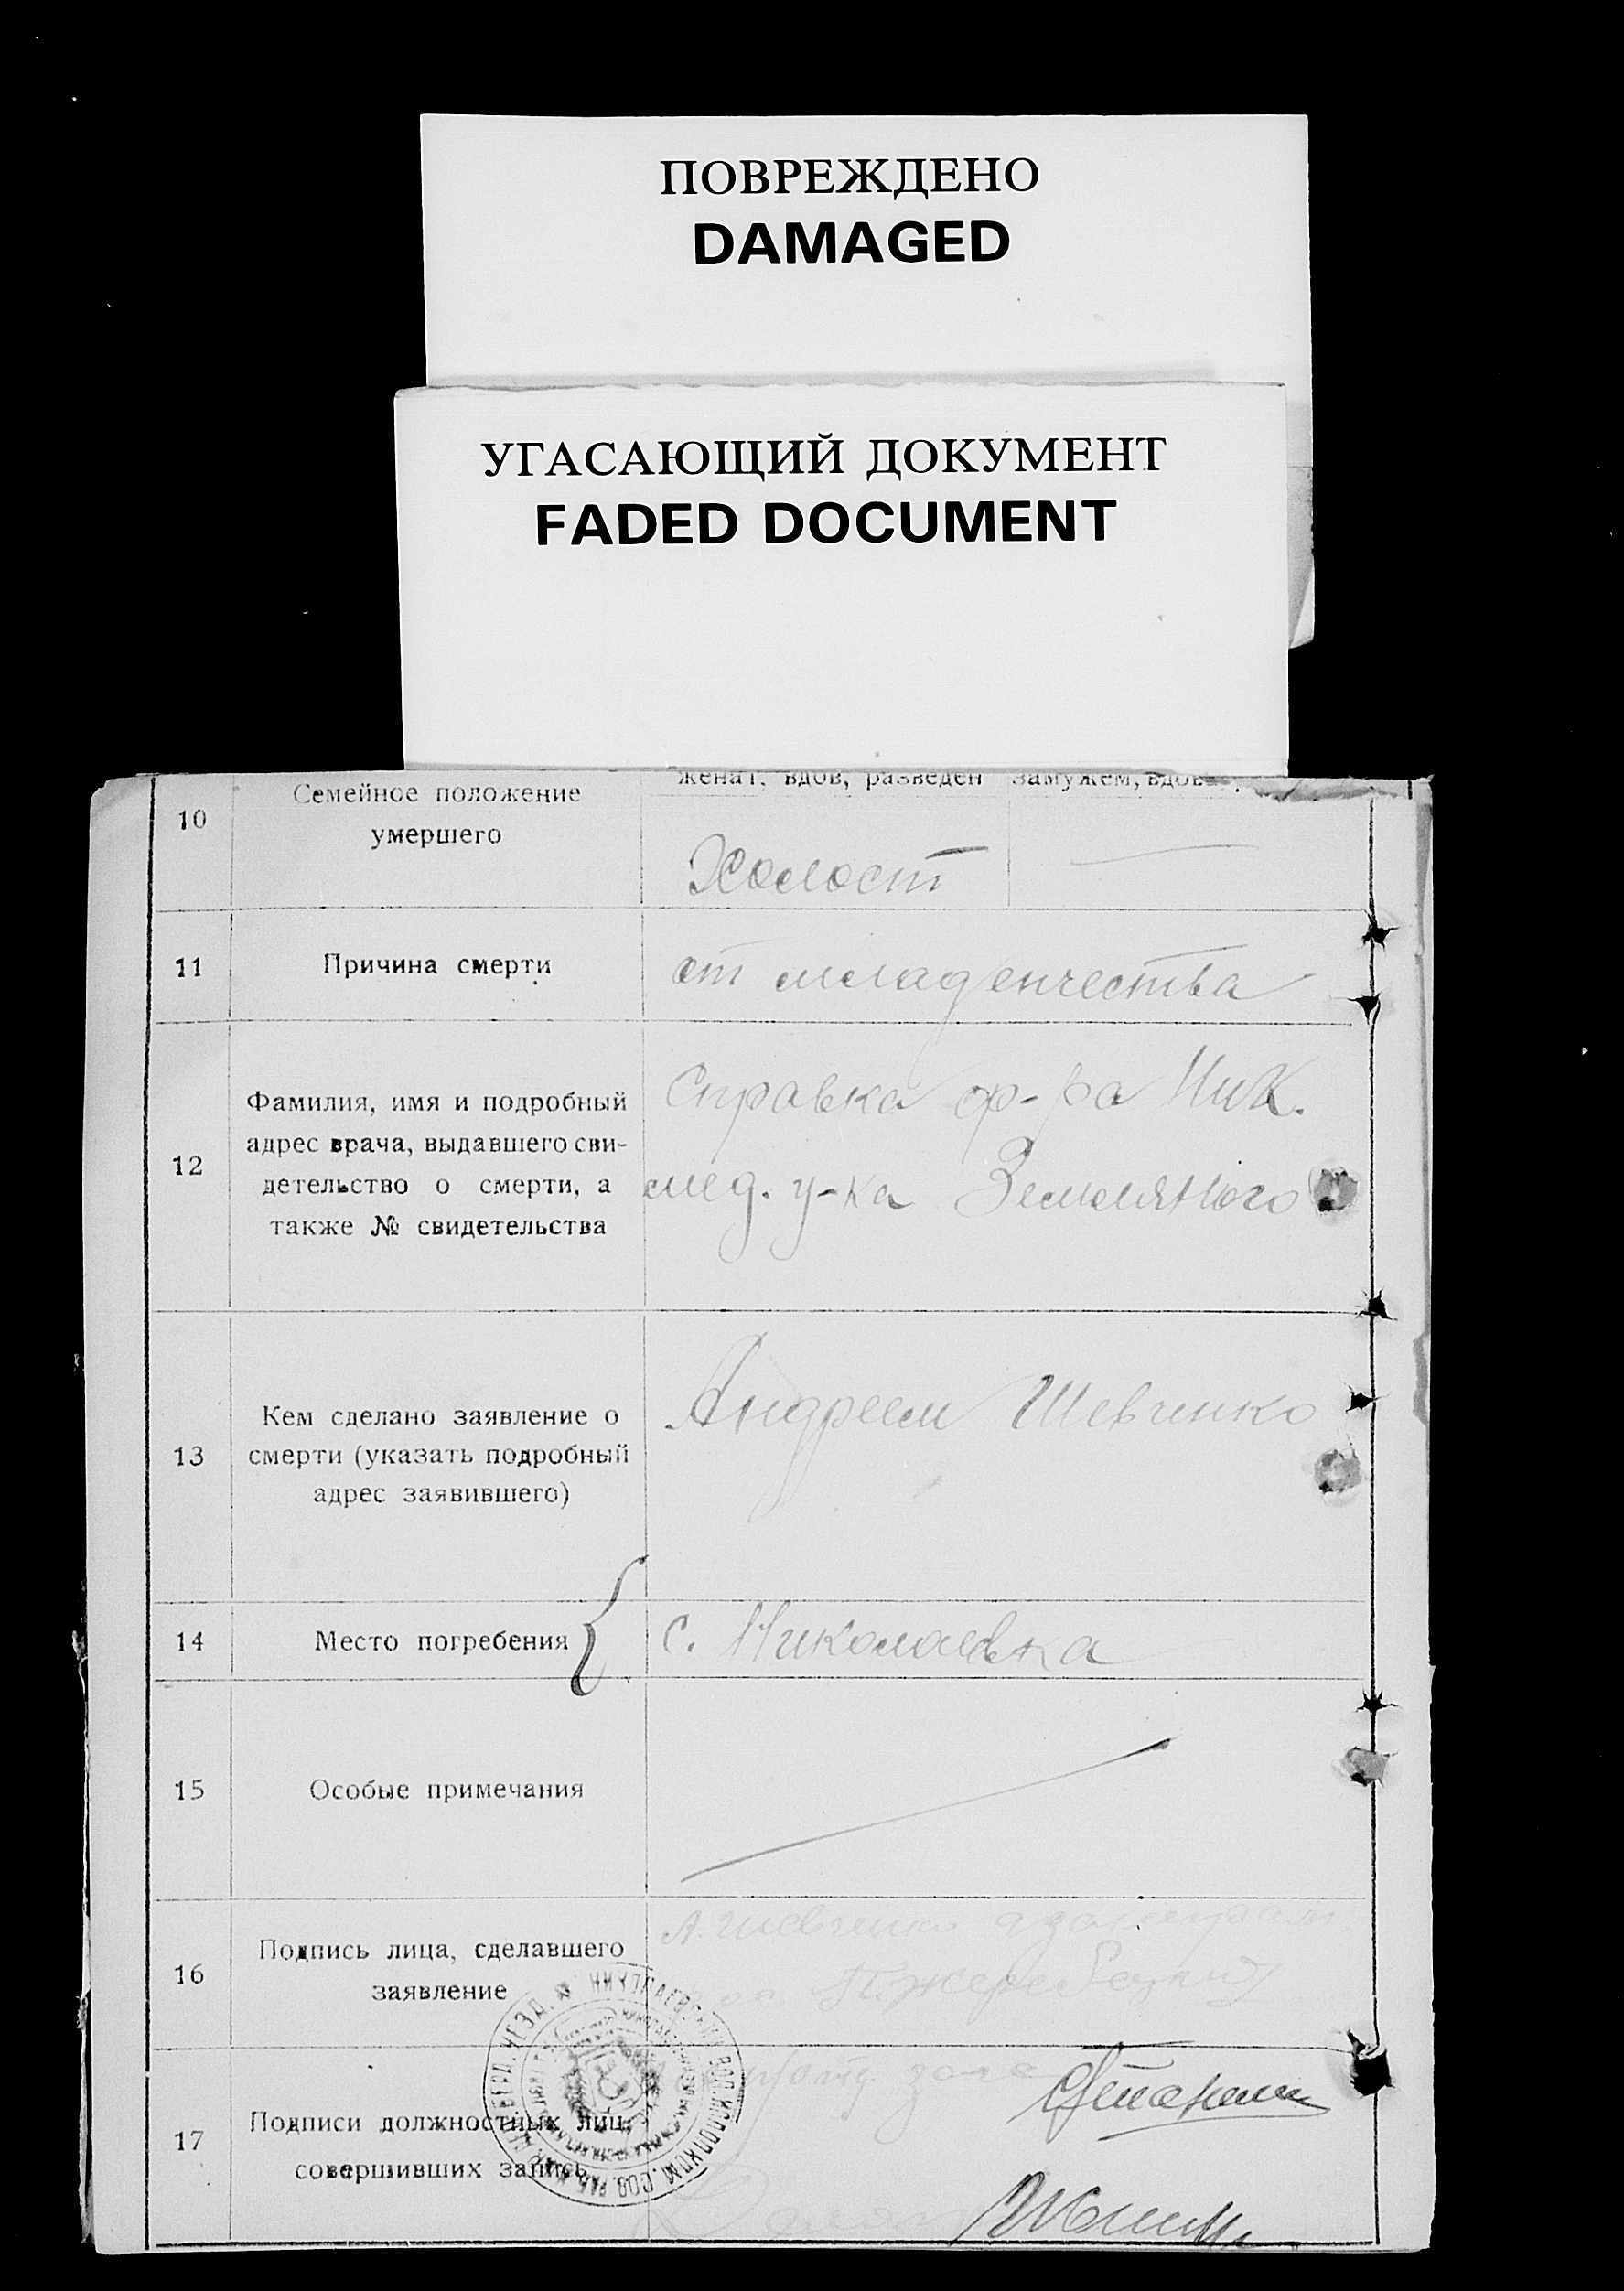 ПОВРЕЖДЕНО
DAMAGED
УГАСАЮЩИЙ ДОКУМЕНТ
FADED DOCUMENT
женат, вдов, разведен замужем,
10 Семейное положение
умершего
Холост —
11 Причина смерти от младенчества
12 Фамилия, имя и подробный
адрес врача, выдавшего сви-
детельство о смерти, а
также № свидетельства
Справка ф-ра Ник.
мед. у-ка Земляного
13 Кем сделано заявление о
смерти (указать подробный
адрес заявившего)
Андреем Шевченко
14 Место погребения с. Николаевка
15 Особые примечания
16 Подпись лица, сделавшего
заявление
А. Шевченко
17 Подписи должностных лиц,
совершивших запись